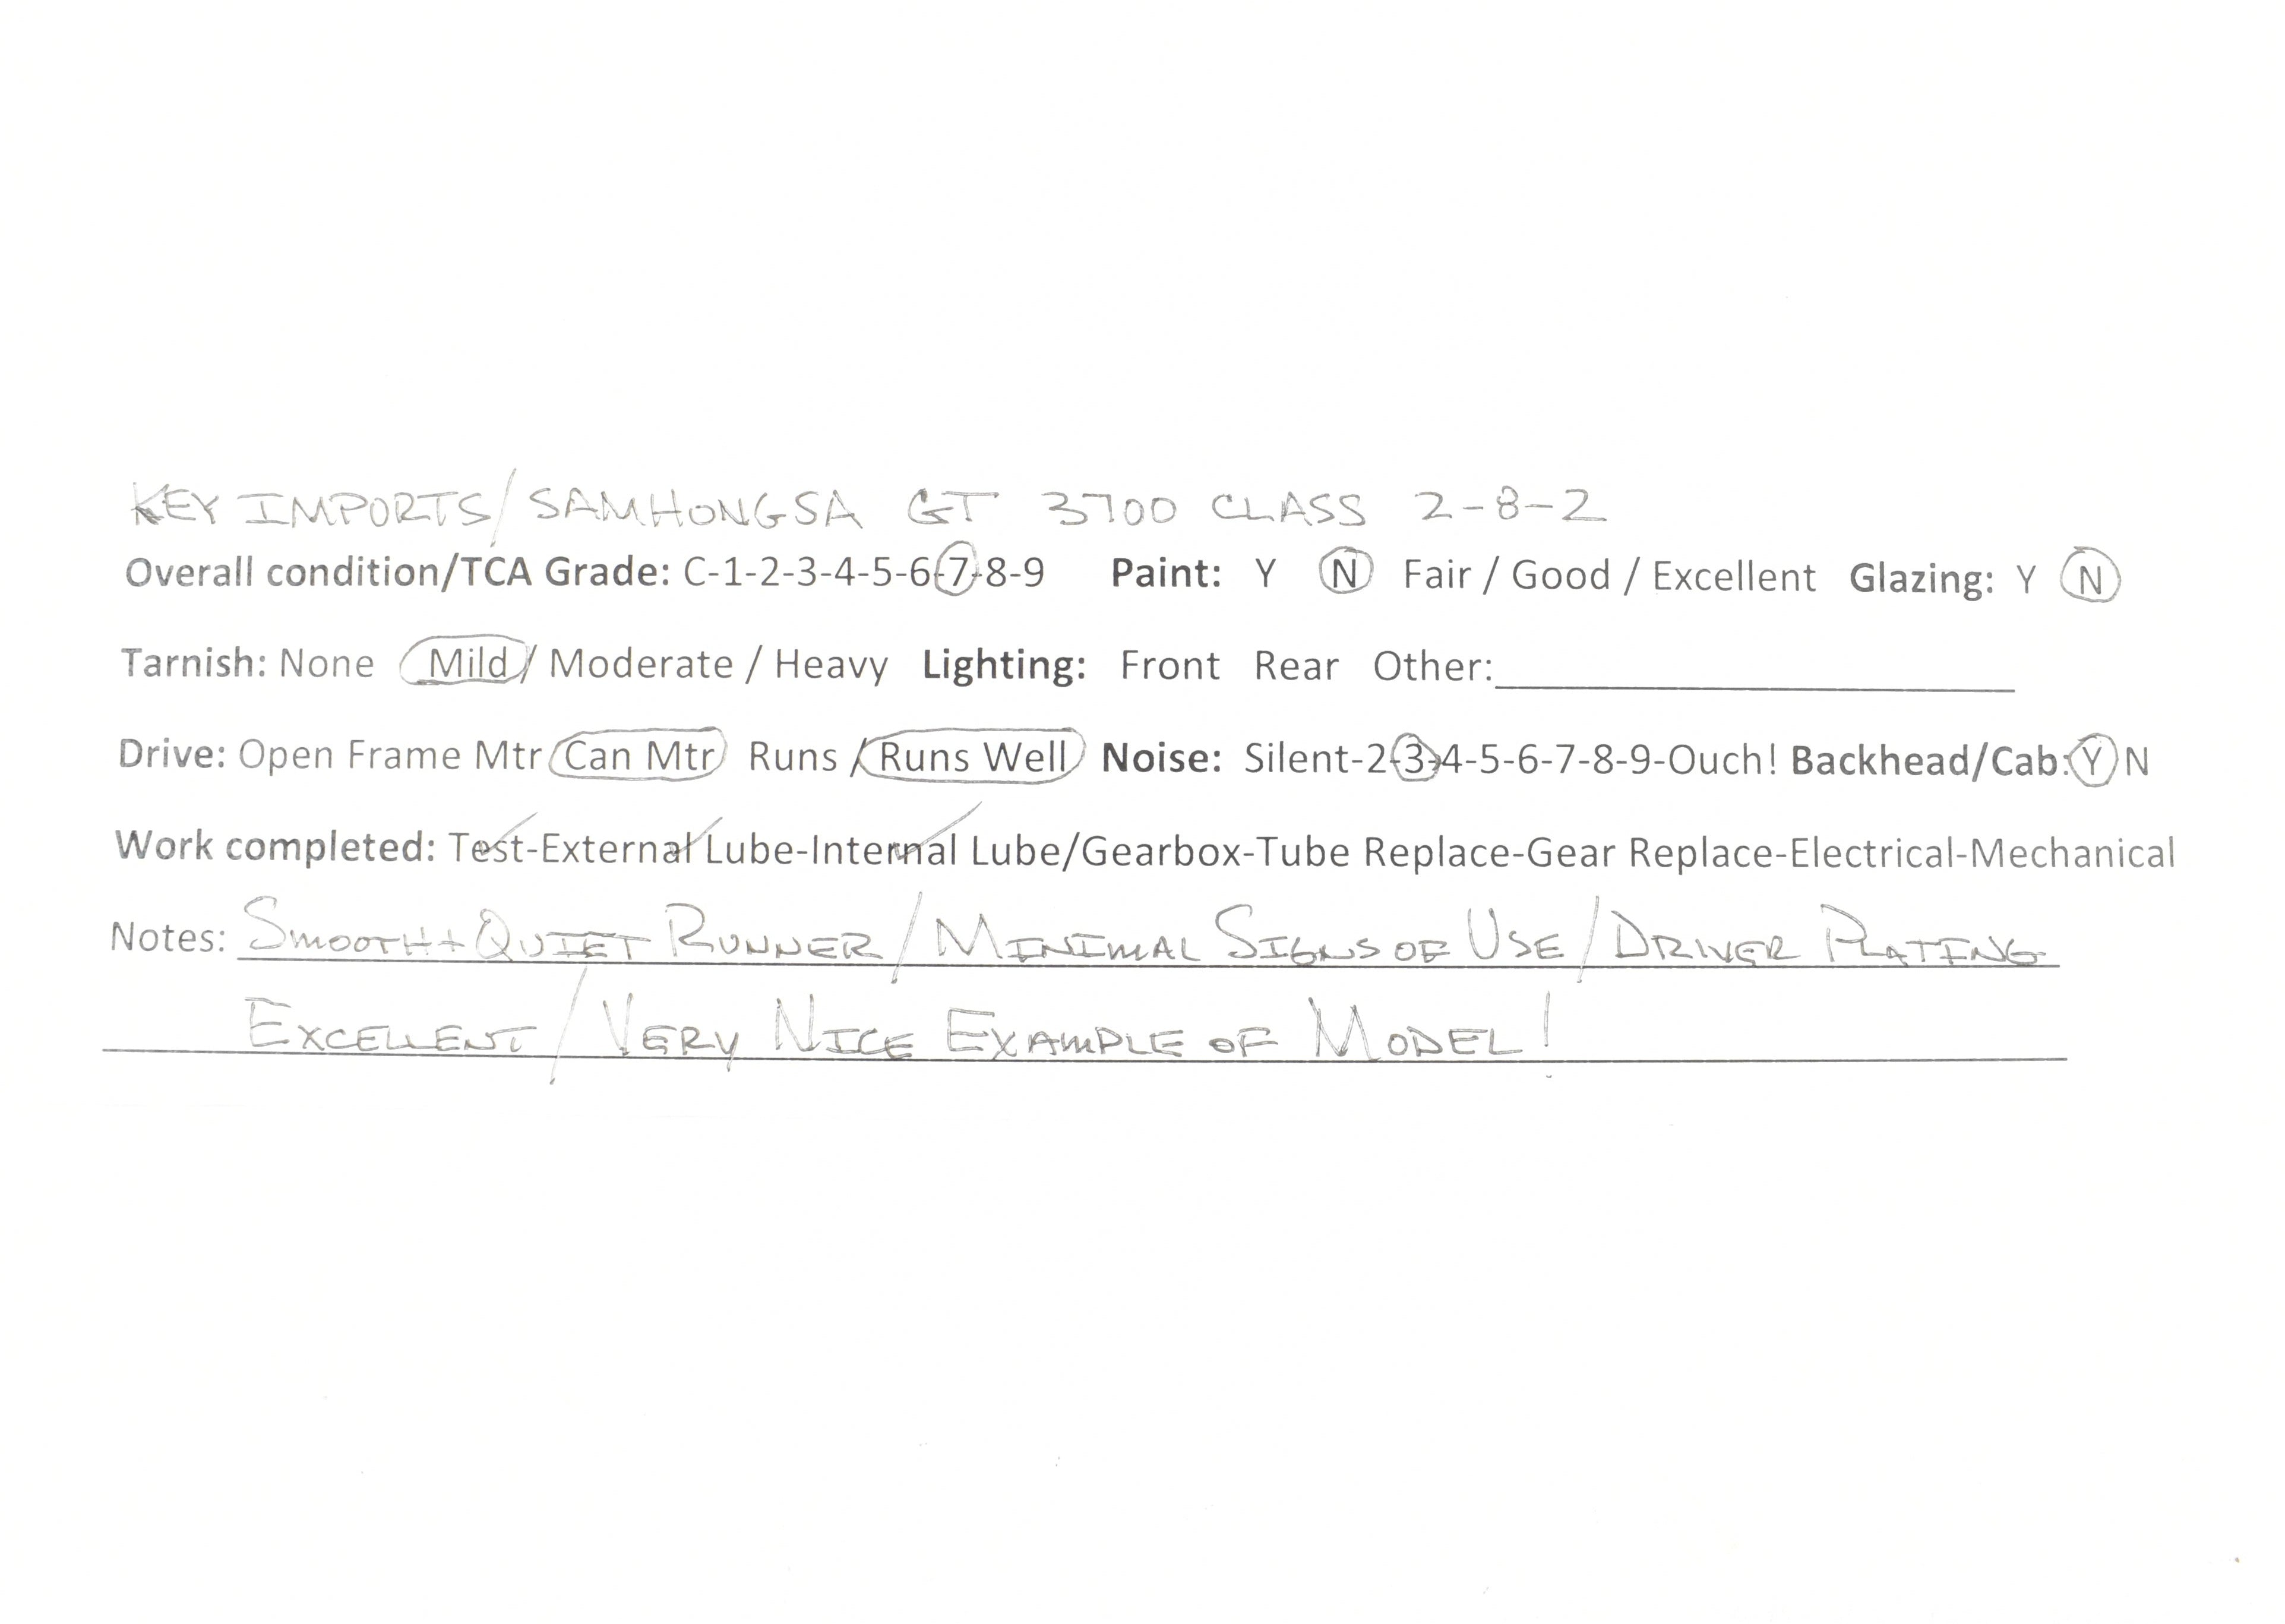 KEY IMPORTS/SAMHONGSA GT 3700 CLASS 2-8-2
Overall condition/TCA Grade: C-1-2-3-4-5-6-7-8-9 Paint: Y N Fair / Good / Excellent Glazing: Y N
Tarnish: None Mild / Moderate / Heavy Lighting: Front Rear Other:
Drive: Open Frame Mtr Can Mtr Runs / Runs Well Noise: Silent-2-3-4-5-6-7-8-9-Ouch! Backhead/Cab: Y N
Work completed: Test-External Lube-Internal Lube/Gearbox-Tube Replace-Gear Replace-Electrical-Mechanical
Notes: SMOOTH + QUIET RUNNER / MINIMAL SIGNS OF USE / DRIVER PLATING
EXCELLENT / VERY NICE EXAMPLE OF MODEL!